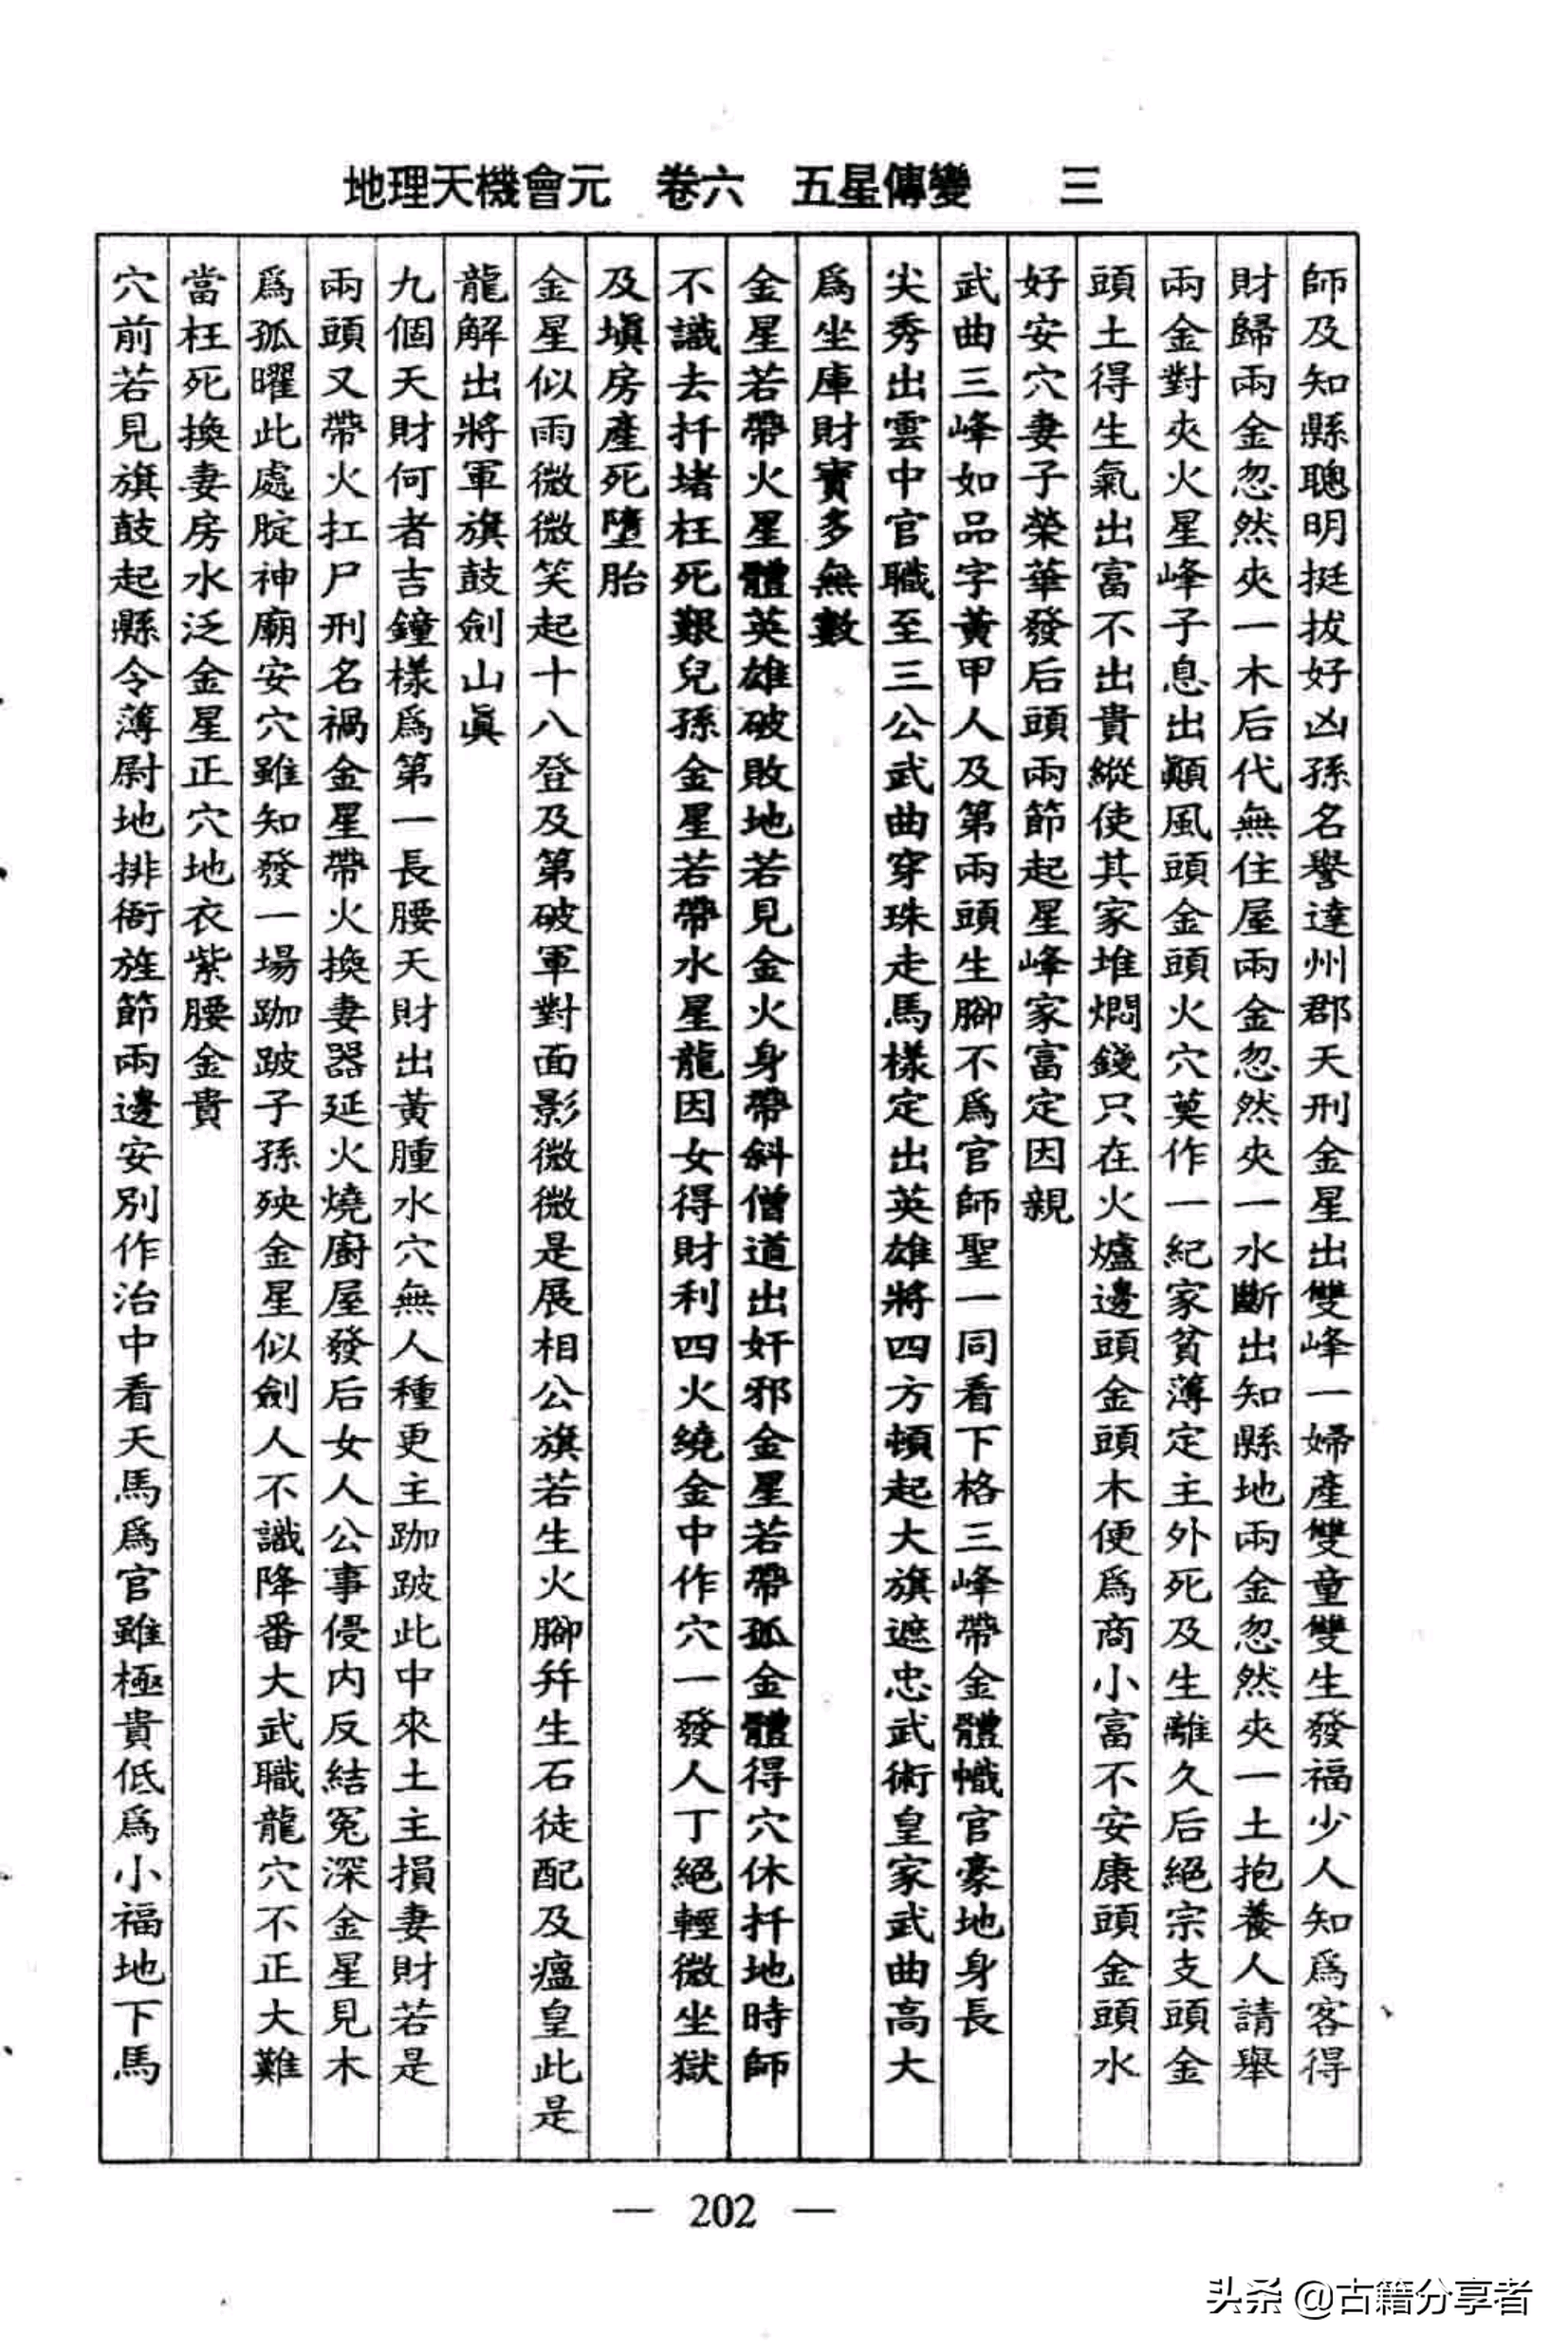 地理天機會元　卷六　五星傳變　　三
師及知縣聰明挺拔好凶孫名譽達州郡天刑金星出雙峰一婦產雙童雙生發福少人知爲客得
財歸兩金忽然夾一木后代無住屋兩金忽然夾一水斷出知縣地兩金忽然夾一土抱養人請舉
兩金對夾火星峰子息出顛風頭金頭火穴莫作一紀家貧薄定主外死及生離久后絕宗支頭金
頭土得生氣出富不出貴縱使其家堆燜錢只在火爐邊頭金頭木便爲商小富不安康頭金頭水
好安穴妻子榮華發后頭兩節起星峰家富定因親
武曲三峰如品字黃甲人及第兩頭生腳不爲官師聖一同看下格三峰帶金體幟官豪地身長
尖秀出雲中官職至三公武曲穿珠走馬樣定出英雄將四方頓起大旗遮忠武術皇家武曲高大
爲坐庫財寳多無數
金星若帶火星體英雄破敗地若見金火身帶斜僧道出奸邪金星若帶孤金體得穴休扦地時師
不識去扦堵枉死艱兒孫金星若帶水星龍因女得財利四火繞金中作穴一發人丁絕輕微坐獄
及塡房產死墮胎
金星似雨微微笑起十八登及第破軍對面影微微是展相公旗若生火腳幷生石徒配及瘟皇此是
龍解出將軍旗鼓劍山眞
九個天財何者吉鐘樣爲第一長腰天財出黃腫水穴無人種更主跏跛此中來土主損妻財若是
兩頭又帶火扛尸刑名禍金星帶火換妻器延火燒廚屋發后女人公事侵内反結冤深金星見木
爲孤曜此處腚神廟安穴雖知發一場跏跛子孫殃金星似劍人不識降番大武職龍穴不正大難
當枉死換妻房水泛金星正穴地衣紫腰金貴
穴前若見旗鼓起縣令薄尉地排衙旌節兩邊安別作治中看天馬爲官雖極貴低爲小福地下馬
— 202 —
头条 @古籍分享者